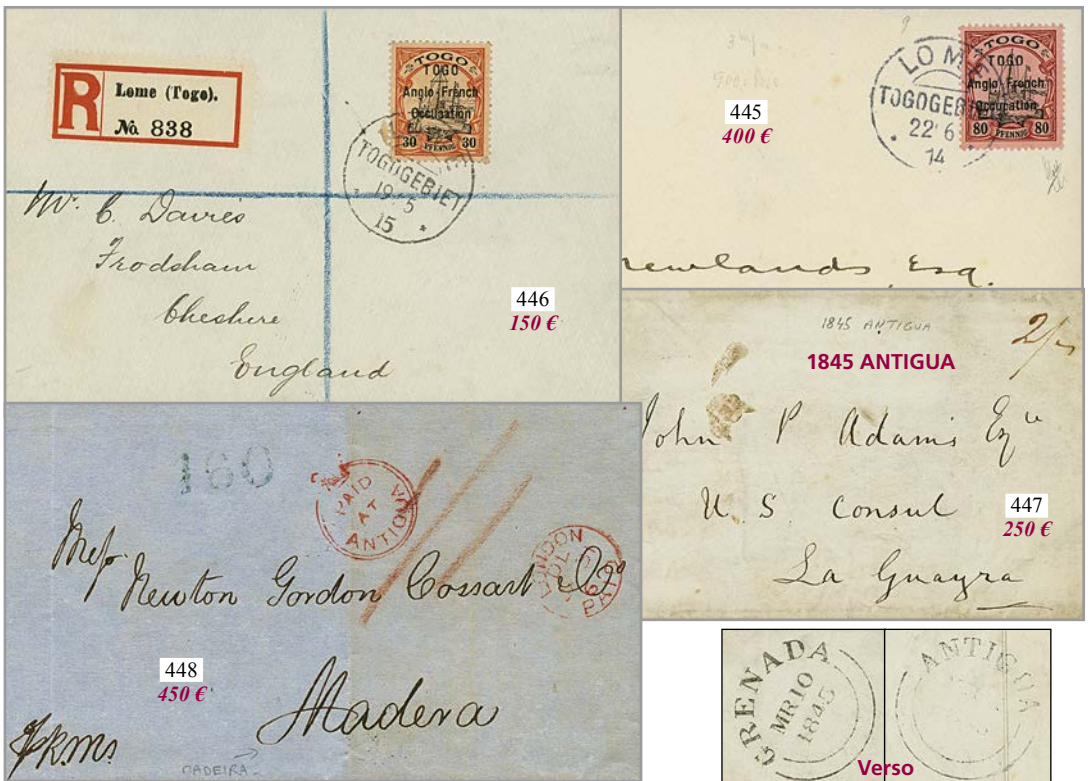 R
Lome (Togo).
No. 838
TOGO
TOGO
Anglo-French
Occupation
30 PFENNIG 30
TOGOGEBIET
19 5
15 *
Mr. C. Davies
Frodsham
Cheshire
England
446
150 €
9
LOM
TOGOGEBI
22 6
14
TOGO
TOGO
Anglo-French
Occupation
80 PFENNIG 80
445
400 €
newlands, Esq.
1845 ANTIGUA
2/-
1845 ANTIGUA
John P Adams Esqre
U. S. Consul
447
250 €
La Guayra
160
PAID
AT
ANTIGUA
LONDON
PAID
Messrs
Newton Gordon Cossart & Co
448
450 €
Madera
MADEIRA
GRENADA
MR 10
1845
ANTIGUA
Verso